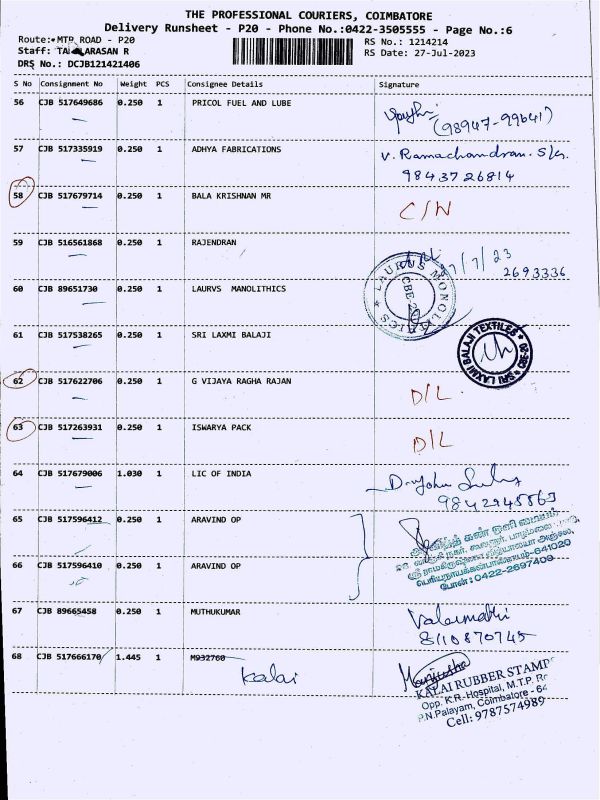 THE PROFESSIONAL COURIERS, COIMBATORE
Delivery Runsheet - P20 - Phone No.:0422-3505555 - Page No.:6
Route: MTP ROAD - P20
RS No.: 1214214
Staff: R
RS Date: 27-Jul-2023
DRS No.: DCJB121421406
S No Consignment No Weight PCS Consignee Details Signature
56 CJB 517649686 0.250 1 PRICOL FUEL AND LUBE
(98947-99641)
57 CJB 517335919 0.250 1 ADHYA FABRICATIONS V. Ramachandran.
9843726814
58 CJB 517679714 0.250 1 BALA KRISHNAN MR C/N
59 CJB 516561868 0.250 1 RAJENDRAN
7/23
2693336
60 CJB 89651730 0.250 1 LAURVS MANOLITHICS LAURUS MONOLITHICS
61 CJB 517538265 0.250 1 SRI LAXMI BALAJI SRI LAXMI BALAJI TEXTILES
62 CJB 517622706 0.250 1 G VIJAYA RAGHA RAJAN D/L
63 CJB 517263931 0.250 1 ISWARYA PACK D/L
64 CJB 517679006 1.030 1 LIC OF INDIA
65 CJB 517596412 0.250 1 ARAVIND OP
66 CJB 517596410 0.250 1 ARAVIND OP
0422-2697409
67 CJB 89665458 0.250 1 MUTHUKUMAR Valarmathi
8110870745
68 CJB 517666170 1.445 1 M932760
Kalai
KALAI RUBBER STAMP
Opp. K.R. Hospital, M.T.P.
P.N.Palayam, Coimbatore - 64
Cell: 9787574989